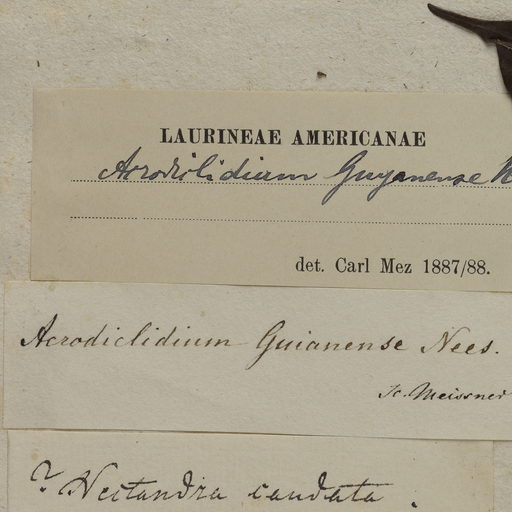 LAURINEAE AMERICANAE
Acrodiclidium Guyanense N
det. Carl Mez 1887/88.
Acrodiclidium Guianense Nees.
Meissner
? Nectandra caudata .